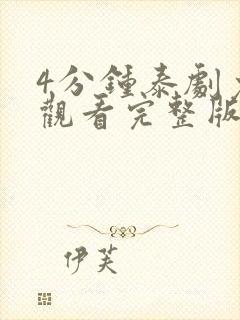 4分鍾泰劇
觀看完整版
伊芙